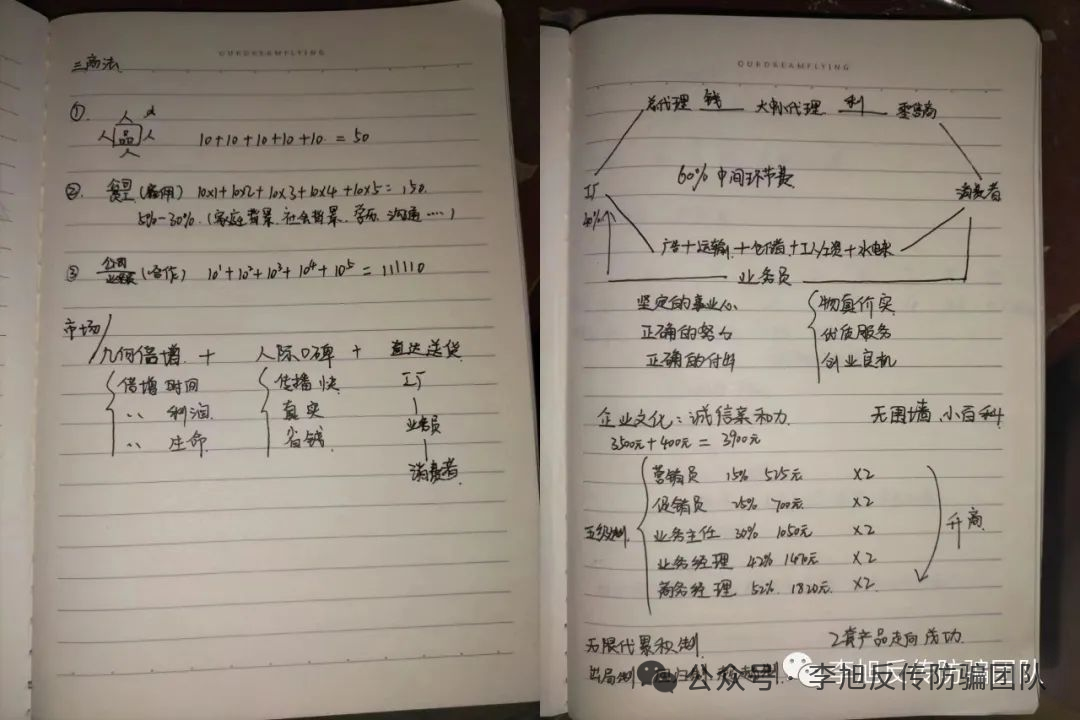 OURDREAMFLYING
三商法
① 人 人 品 人 人 10+10+10+10+10 = 50
② (雇用) 10×1+10×2+10×3+10×4+10×5=150
5%-30%. (家庭背景. 社会背景. 学历. 沟通……)
③ 公司 业务员 (合作) 10¹+10²+10³+10⁴+10⁵ = 111110
市场/几何倍增 + 人际口碑 + 直达送货
倍增时间 传播快 工厂
〃 利润 真实 业务员
〃 生命 省钱 消费者
OURDREAMFLYING
总代理 钱 大制代理 利 零售商
工厂 60% 中间环节费 消费者
40%
广告+运输+仓储+工人工资+水电
业务员
坚定的事业心 物真价实
正确的努力 优质服务
正确的付出 创业良机
企业文化:诚信亲和力 无围墙 小百科
3500元+400元 = 3900元
五级制
营销员 15% 525元 ×2
促销员 25% 700元 ×2
业务主任 30% 1050元 ×2
业务经理 42% 1470元 ×2
商务经理 52% 1820元 ×2
升商
无限代累积制 2套产品走向成功
出局制
公众号 李旭反传防骗团队
李旭反传防骗团队